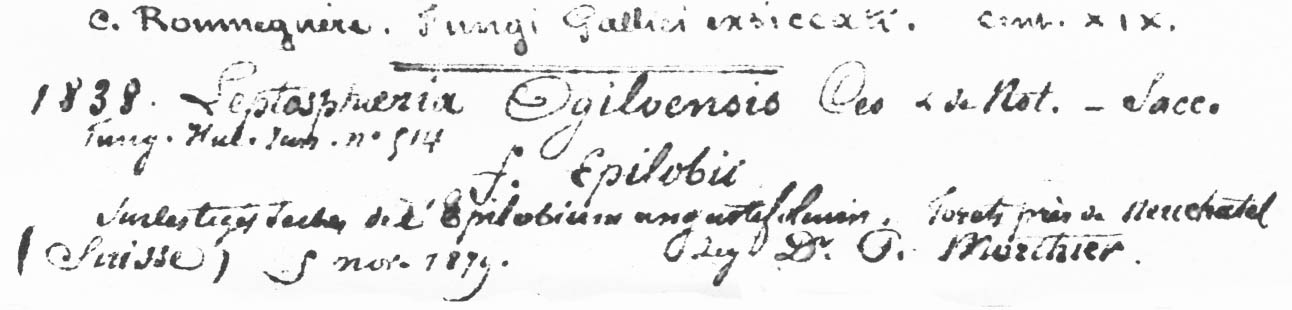 C. Roumeguère. Fungi Gallici exsiccati. Cent. XIX.
1838. Leptosphæria Ogilvensis Ces & de Not. – Sacc.
Fung. Ital. n° 514
f. Epilobii
Sur les tiges seches de l'Epilobium angustifolium. Forets près de Neuchatel
(Suisse) 5 nov. 1879. leg Dr. P. Morthier.